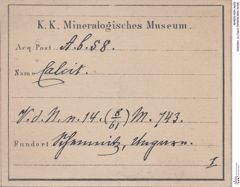 K. K. Mineralogisches Museum.
Acq. Post. A. b. 58.
Name Calcit.
V. d. N. n. 14. (8/61) M. 743.
Fundort Schemnitz, Ungarn.
I